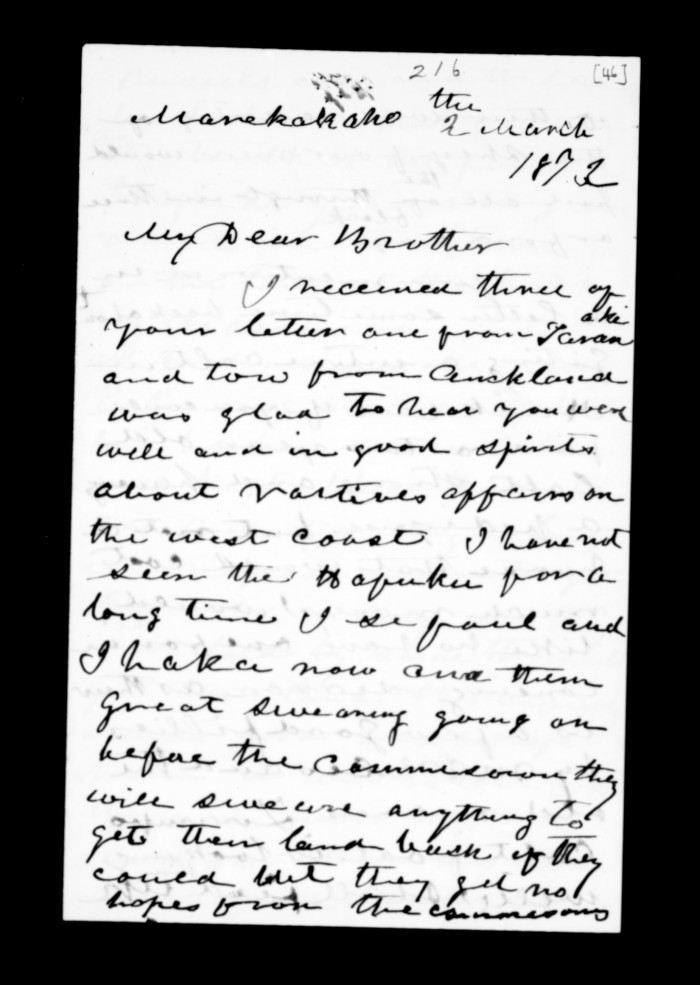 216 [46]
Marekakaho the
2 March
1873
My Dear Brother
I received three of
your letter one from Taranaki
and tow from Auckland
was glad to hear you were
well and in good spirits
about Nartives affairs on
the west coast I have not
seen the Hapuku for a
long time I se paul and
I haka now and them
great swearing going on
befor the Commisown they
will sweare anything to
get their land back if they
could but they get no
hopes from the commesons